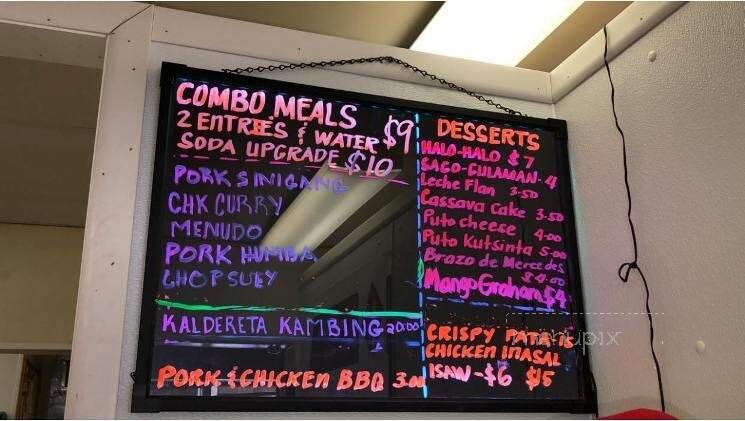 COMBO MEALS
2 ENTREES & WATER $9
SODA UPGRADE $10
PORK SINIGANG
CHK CURRY
MENUDO
PORK HUMBA
CHOPSUEY
KALDERETA KAMBING 20.00
PORK & CHICKEN BBQ 3.00
DESSERTS
HALO-HALO $7
SAGO-GULAMAN-4
Leche Flan 3.50
Cassava Cake 3.50
Puto cheese 4.00
Puto Kutsinta 5.00
Brazo de Mercedes
$4.00
Mango Graham $4
CRISPY PATA
CHICKEN INASAL
ISAW-$6 $15
menupix